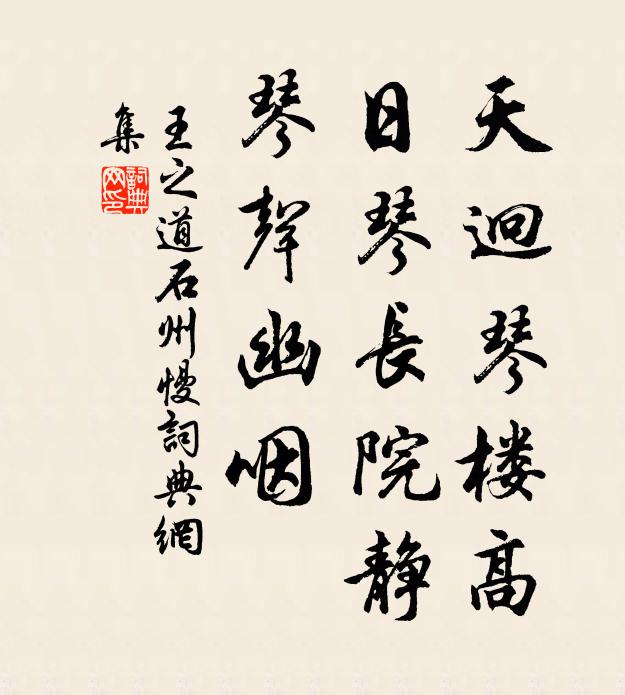 天迥琴楼高
日琴長院静
琴聲幽咽
王之道石州慢詞典網
集
詞典
网印